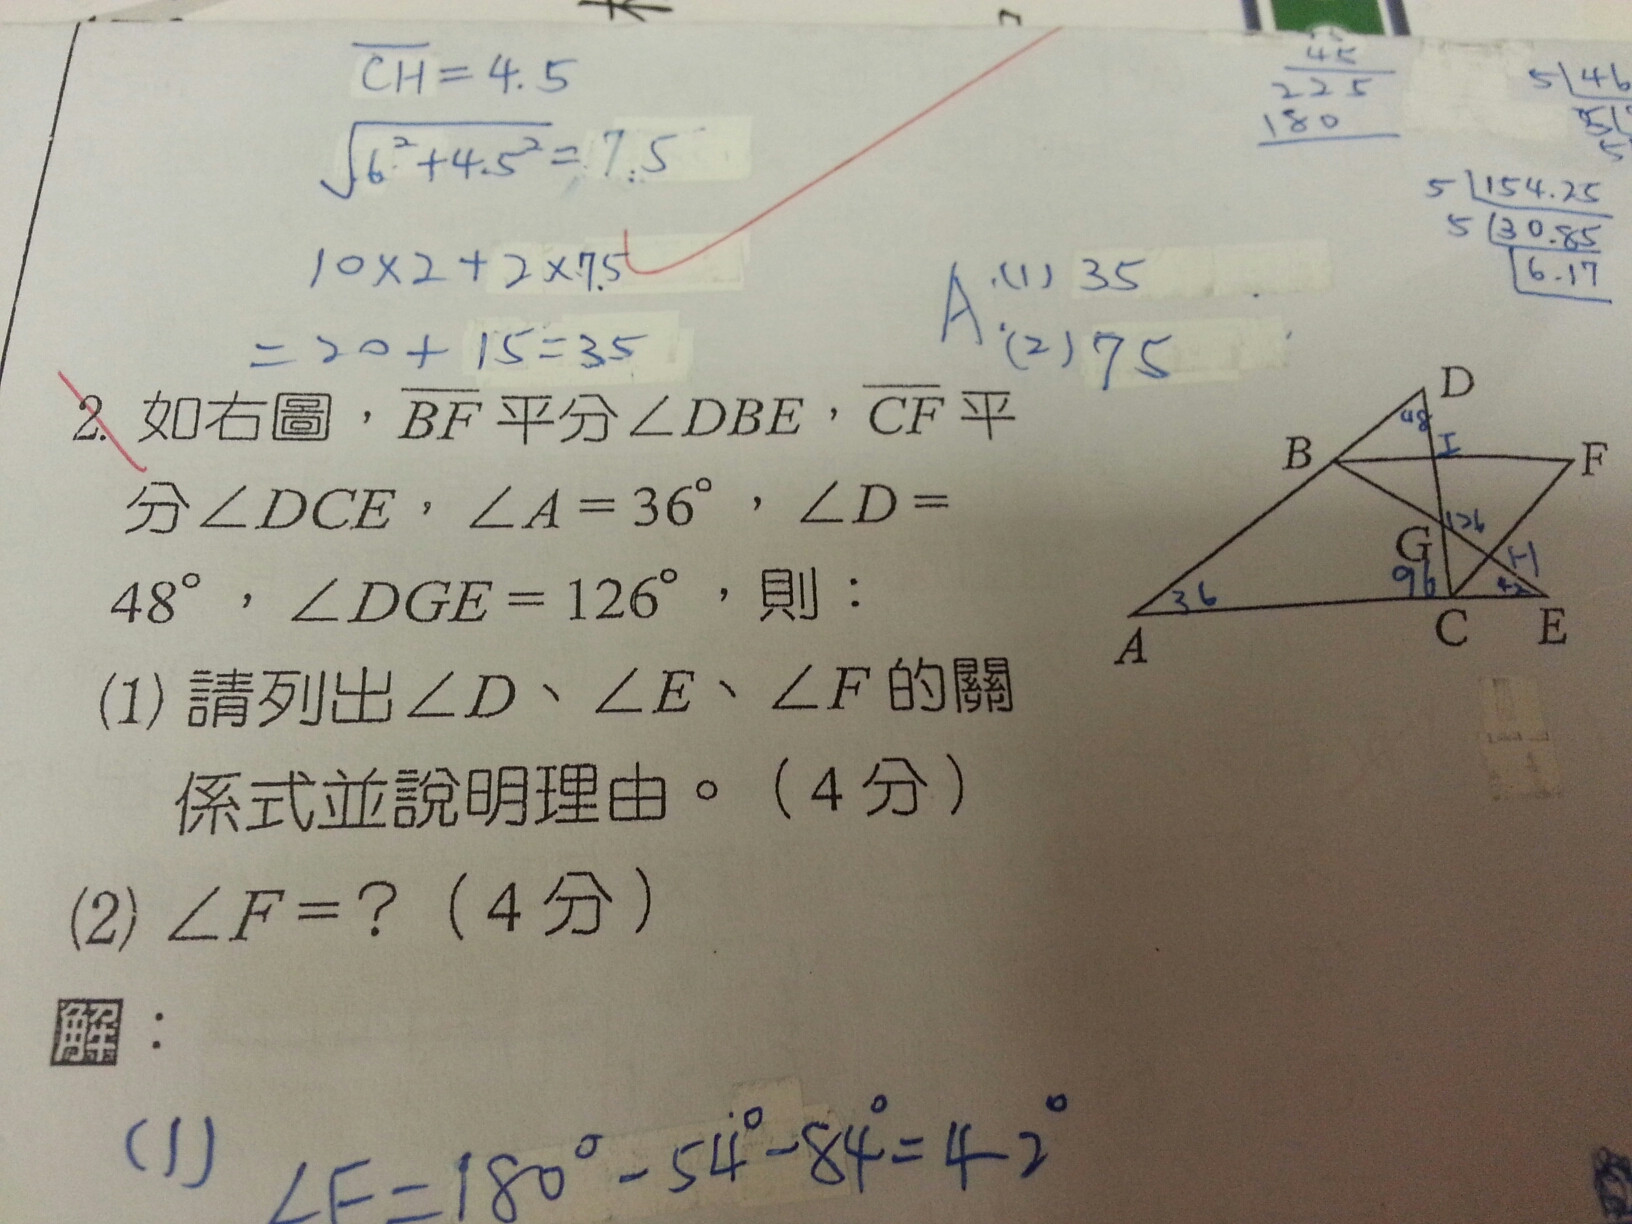 CH = 4.5
√6²+4.5² = 7.5
10×2+2×7.5
=20+15=35
A:(1) 35
(2) 75
45
225
180
5 46
5 154.25
5 30.85
6.17
2. 如右圖，BF 平分∠DBE，CF 平
分∠DCE，∠A＝36°，∠D＝
48°，∠DGE＝126°，則：
(1) 請列出∠D、∠E、∠F 的關
係式並說明理由。（4 分）
(2) ∠F＝？（4 分）
D
48
B I F
126
G H
36 96 42
A C E
解：
(1) ∠E=180°-54°-84°=42°